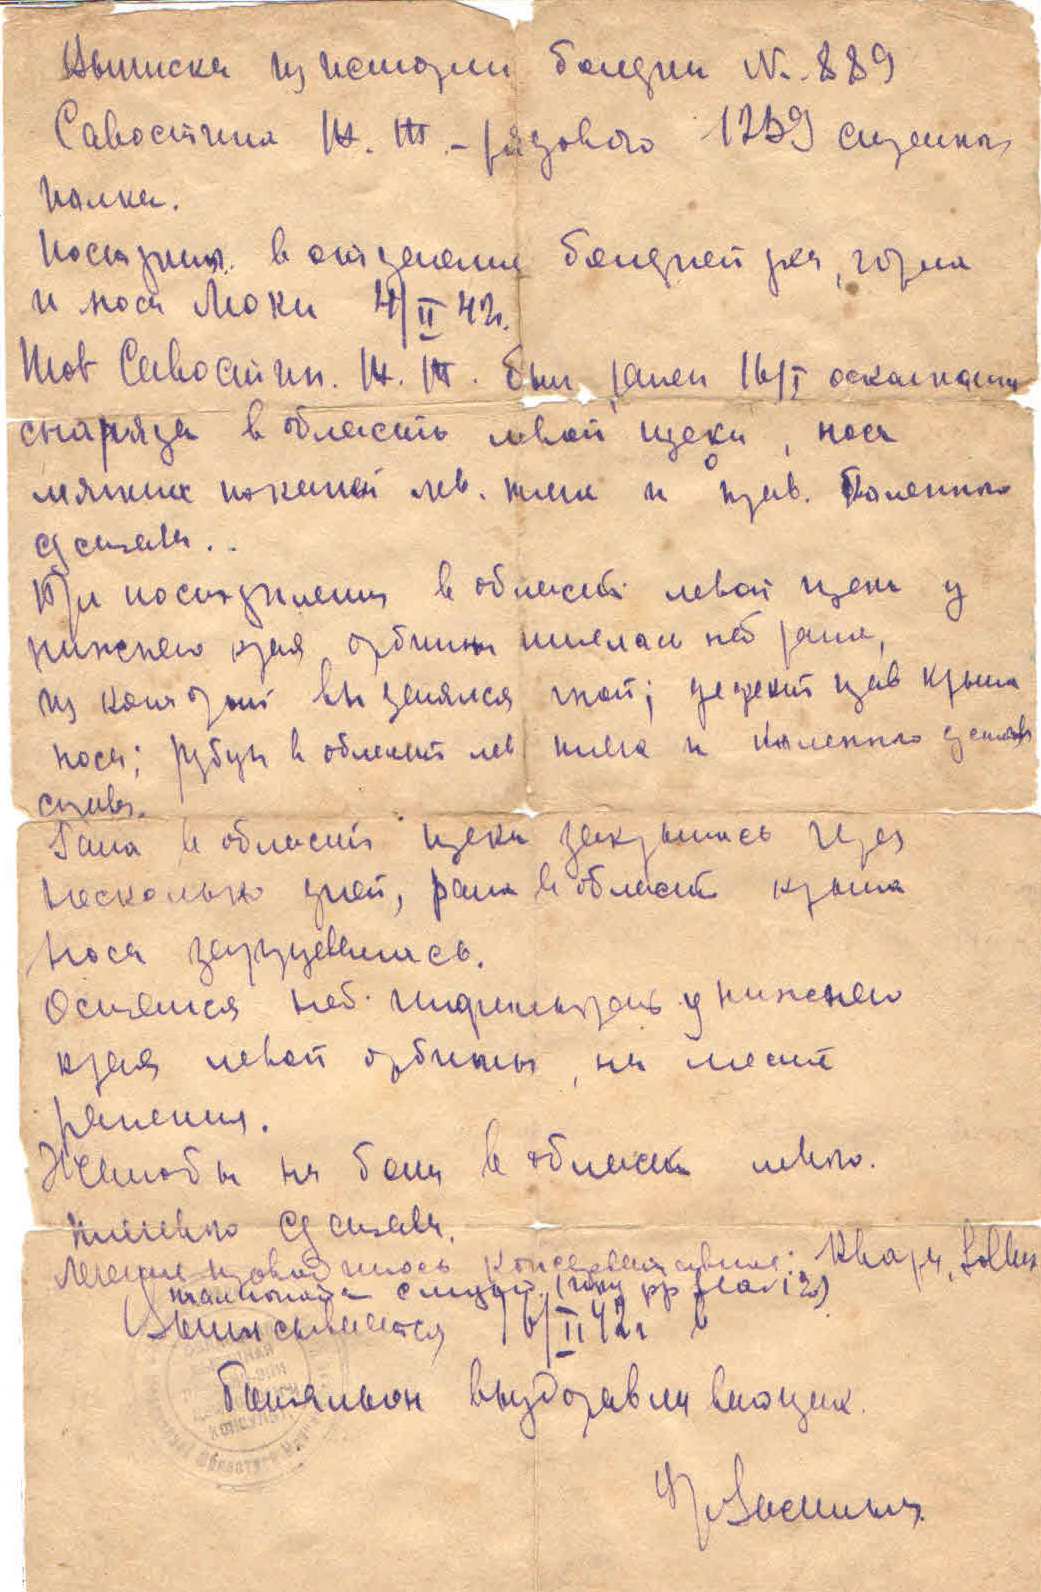 Выписка из истории болезни №. 889
Савостина И. Т. – рядового 1259 стрелков.
полка.
Поступил. в отделение болезней уха, горла
и носа ЛОКИ 4/II 42г.
Тов Савостин. И. Т. был ранен 16/I осколками
снаряда в область левой щеки, носа
мягких тканей лев. плеча и прав. Коленного
сустава..
При поступлении в области левой щеки у
нижнего края орбиты имелась неб рана,
из которой выделялся гной; дефект прав крыла
носа; рубцы в области лев плеча и коленного сустава
справа.
Рана в области щеки закрылась через
несколько дней, рана в области крыла
носа зарубцевалась.
Остается неб. инфильтрат у нижнего
края левой орбиты, на месте
ранения.
Жалобы на боли в области левого.
плечевого сустава.
Лечение проводилось консервативное: Кварц, Sollux
Выписывается 16/II 42г в
батальон выздоравливающих.